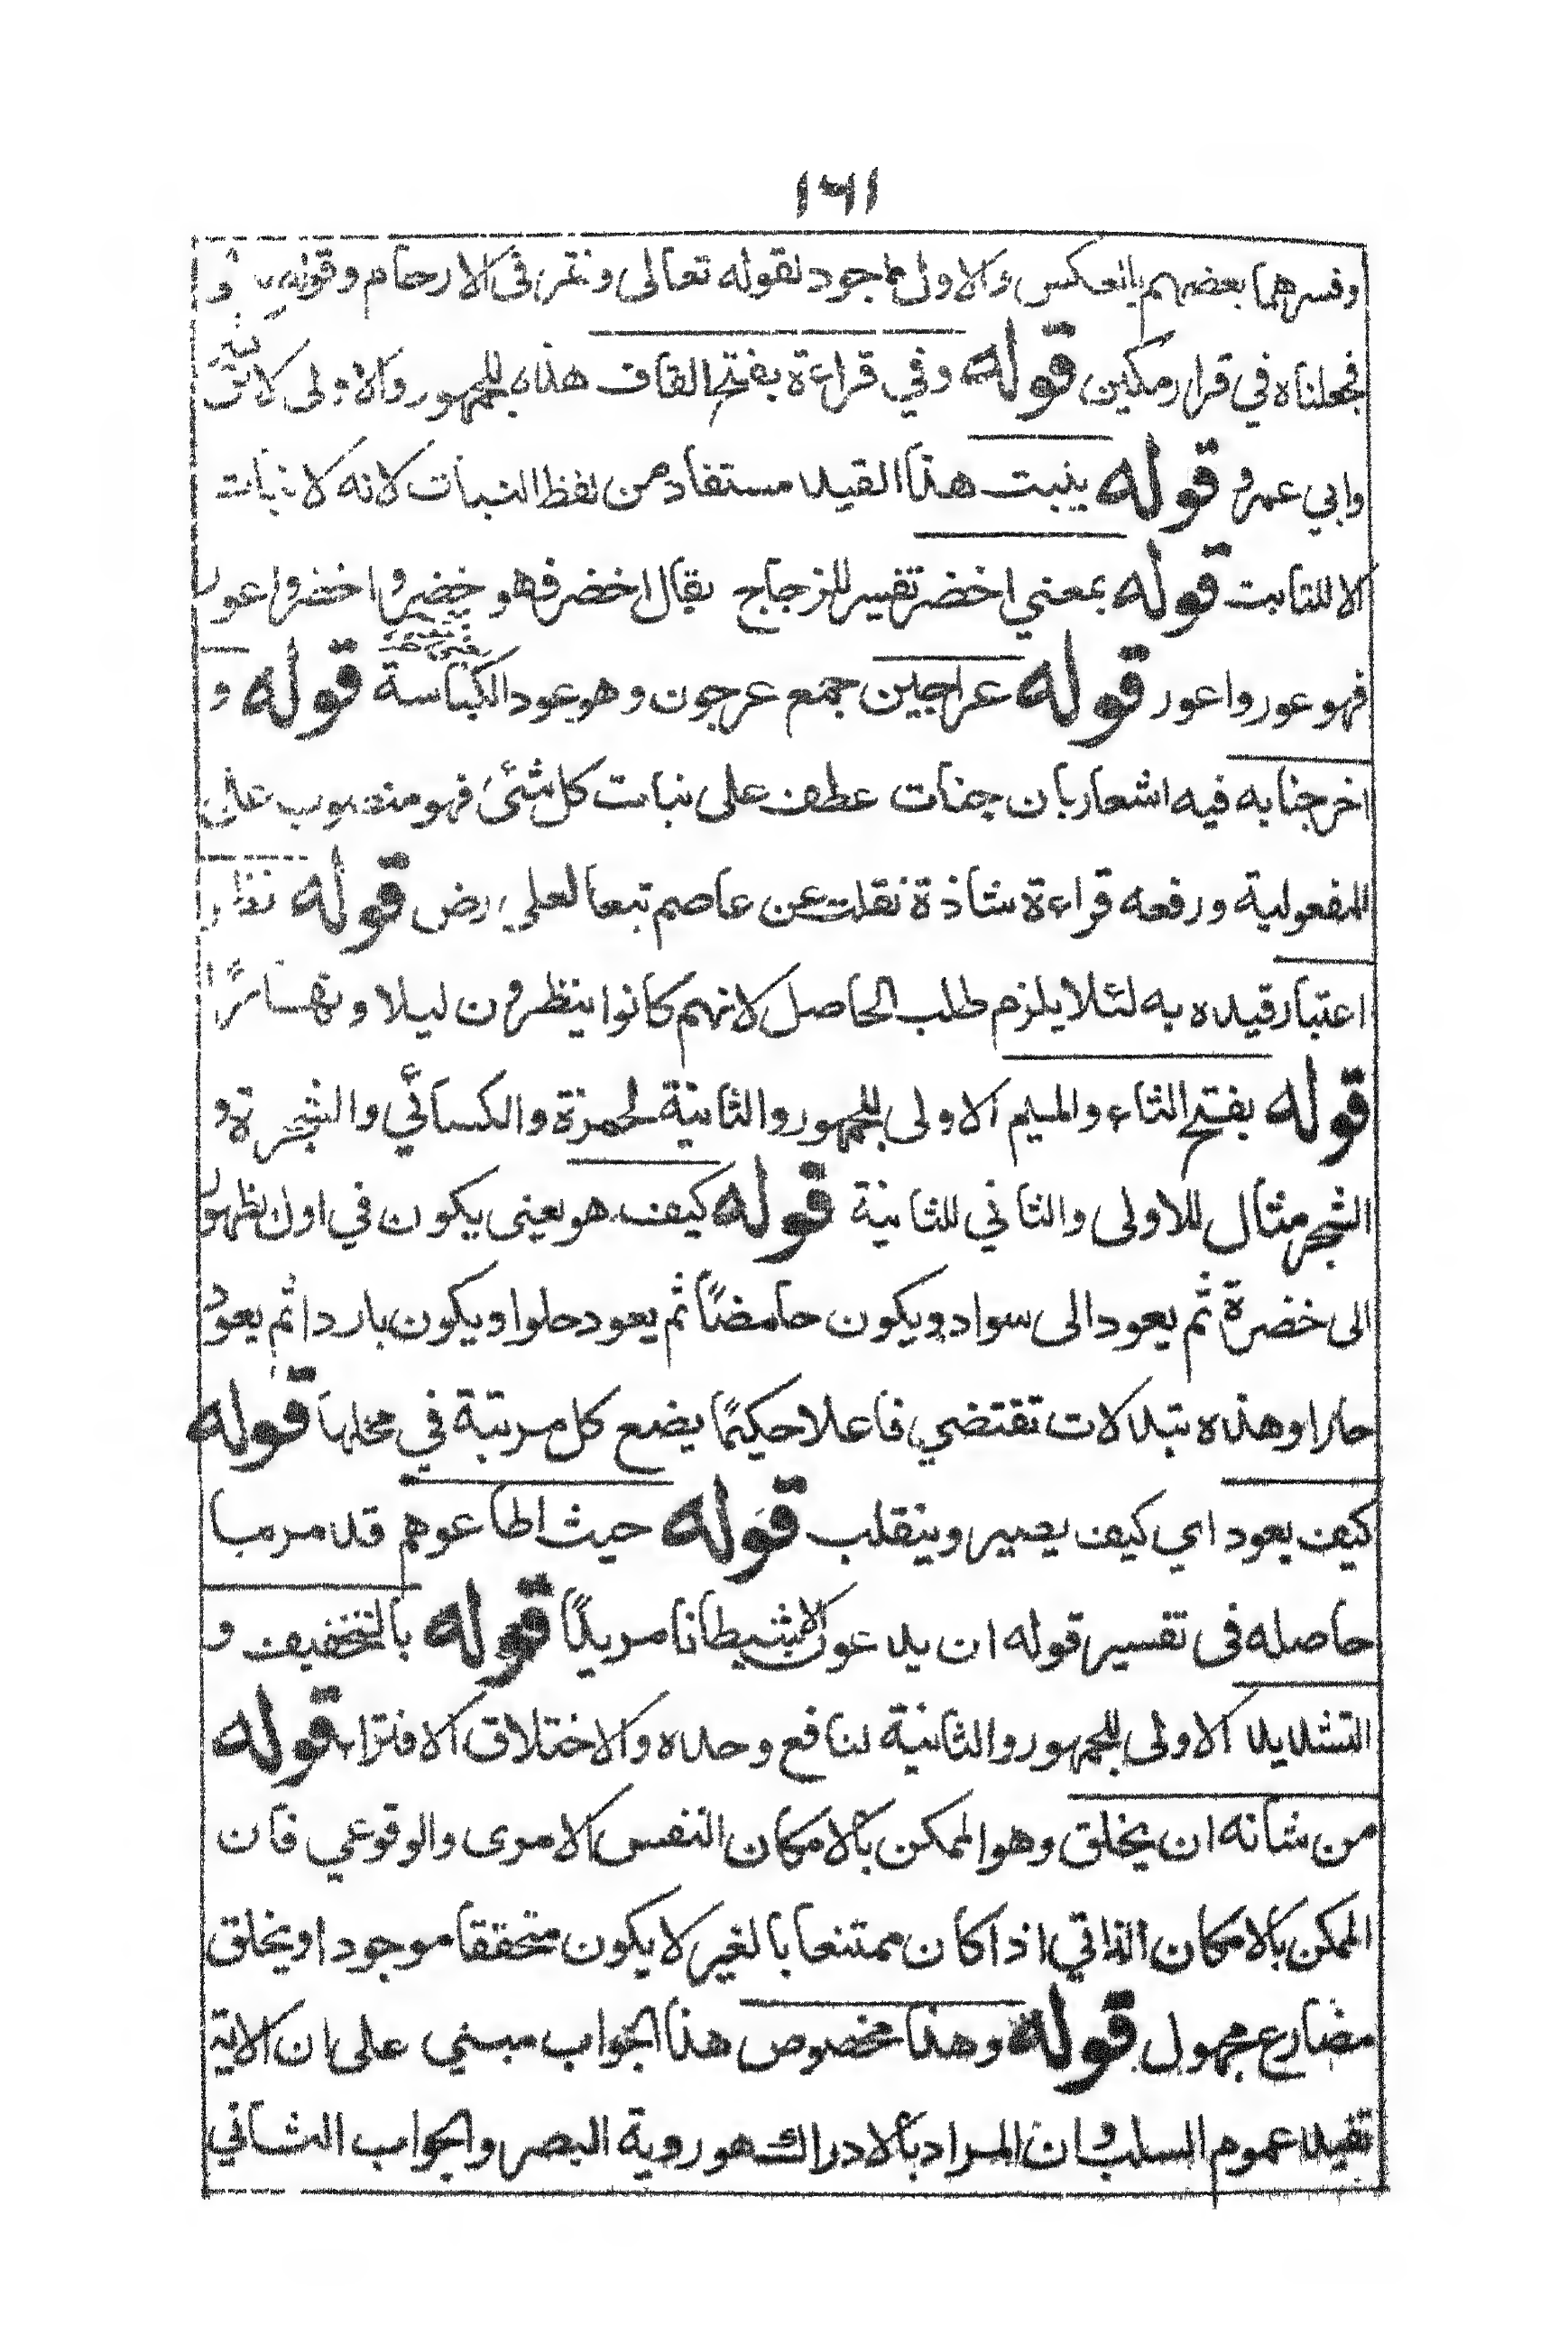 ١٦١
وفسرهما بعضهم بالعكس والاول اجود لقوله تعالى ونقر في الارحام وقوله
فجعلناه في قرار مكين قوله وفي قراءة بفتح القاف هذه للجمهور والاولى لابن كثير
وابي عمرو قوله ينبت هذا القيد مستفاد من لفظ النبات لانه لا نبات
الا للنابت قوله بمعني اخضر تفسير للزجاج يقال اخضر فهو خضر واخضر واعور
فهو عور واعور قوله عراجين جمع عرجون وهو عود الكباسة قوله و
اخرجنا به فيه اشعار بان جنات عطف على نبات كل شئ فهو منصوب على
المفعولية ورفعه قراءة شاذة نقلت عن عاصم تبعا لعلي رض قوله نظر
اعتبار قيده به لئلا يلزم طلب الحاصل لانهم كانوا ينظرون ليلا ونهارًا
قوله بفتح الثاء والميم الاولى للجمهور والثانية لحمزة والكسائي والشجرة و
الشجر مثال للاولى والثاني للثانية قوله كيف هو يعنى يكون في اول ظهور
الى خضرة ثم يعود الى سواد ويكون حامضًا ثم يعود حلوا ويكون باردا ثم يعود
حارا وهذه تبدلات تقتضي فاعلا حكيمًا يضع كل مرتبة في محلها قوله
كيف يعود اي كيف يصير وينقلب قوله حيث اطاعوهم قد مر مبا
حاصله فى تفسير قوله ان يدعون الا شيطانا مريدًا قوله بالتخفيف و
التشديد الاولى للجمهور والثانية لنافع وحده والاختلاق الافتراء قوله
من شانه ان يخلق وهو الممكن بالامكان النفس الامرى والوقوعي فان
الممكن بالامكان الذاتي اذا كان ممتنعا بالغير لا يكون متحققا موجودا ويخلق
مضارع مجهول قوله وهذا مخصوص هذا الجواب مبني على ان الاية
تفيد عموم السلب وان المراد بالادراك هو روية البصر والجواب الثاني